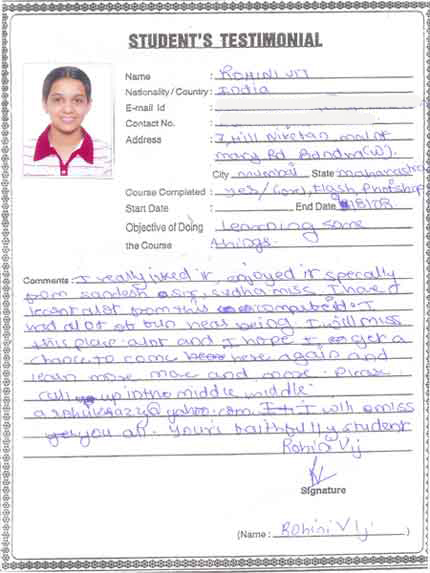 STUDENT'S TESTIMONIAL
Name : ROHINI VIJ
Nationality / Country : India
E-mail Id :
Contact No. :
Address : 7, Hill Niketan, mount
mary Rd. Bandra(W).
City mumbai State maharastra
Course Completed : yes / Corel, Flash, Photshop
Start Date : End Date
Objective of Doing : Learning some
the Course things.
Comments : I really liked it, enjoyed it specally
from sandesh sir, sudha miss. I have
learnt alot from this computer. I
had alot of fun being. I will miss
this place alot and I hope I get a
chance to come here again and
learn more and more. Please
call up in the middle middle
@yahoo.com I will miss
you all. Your's faithfully student
Rohini Vij
Signature
(Name : Rohini VIJ )